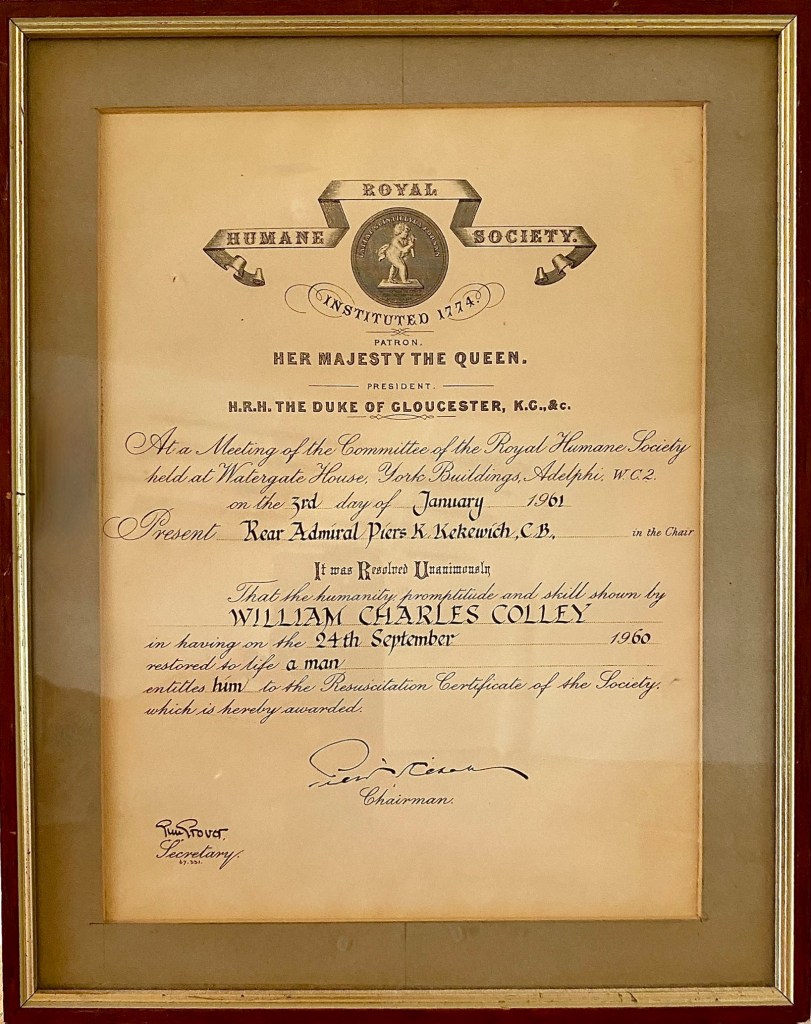 ROYAL
HUMANE SOCIETY.
INSTITUTED 1774.
PATRON.
HER MAJESTY THE QUEEN.
PRESIDENT.
H.R.H. THE DUKE OF GLOUCESTER, K.G.,&c.
At a Meeting of the Committee of the Royal Humane Society
held at Watergate House, York Buildings, Adelphi, W.C.2.
on the 3rd day of January 1961
Present Rear Admiral Piers K. Kekewich, C.B., in the Chair
It was Resolved Unanimously
That the humanity, promptitude and skill shown by
WILLIAM CHARLES COLLEY
in having on the 24th September 1960
restored to life a man
entitles him to the Resuscitation Certificate of the Society,
which is hereby awarded.
Chairman.
Secretary.